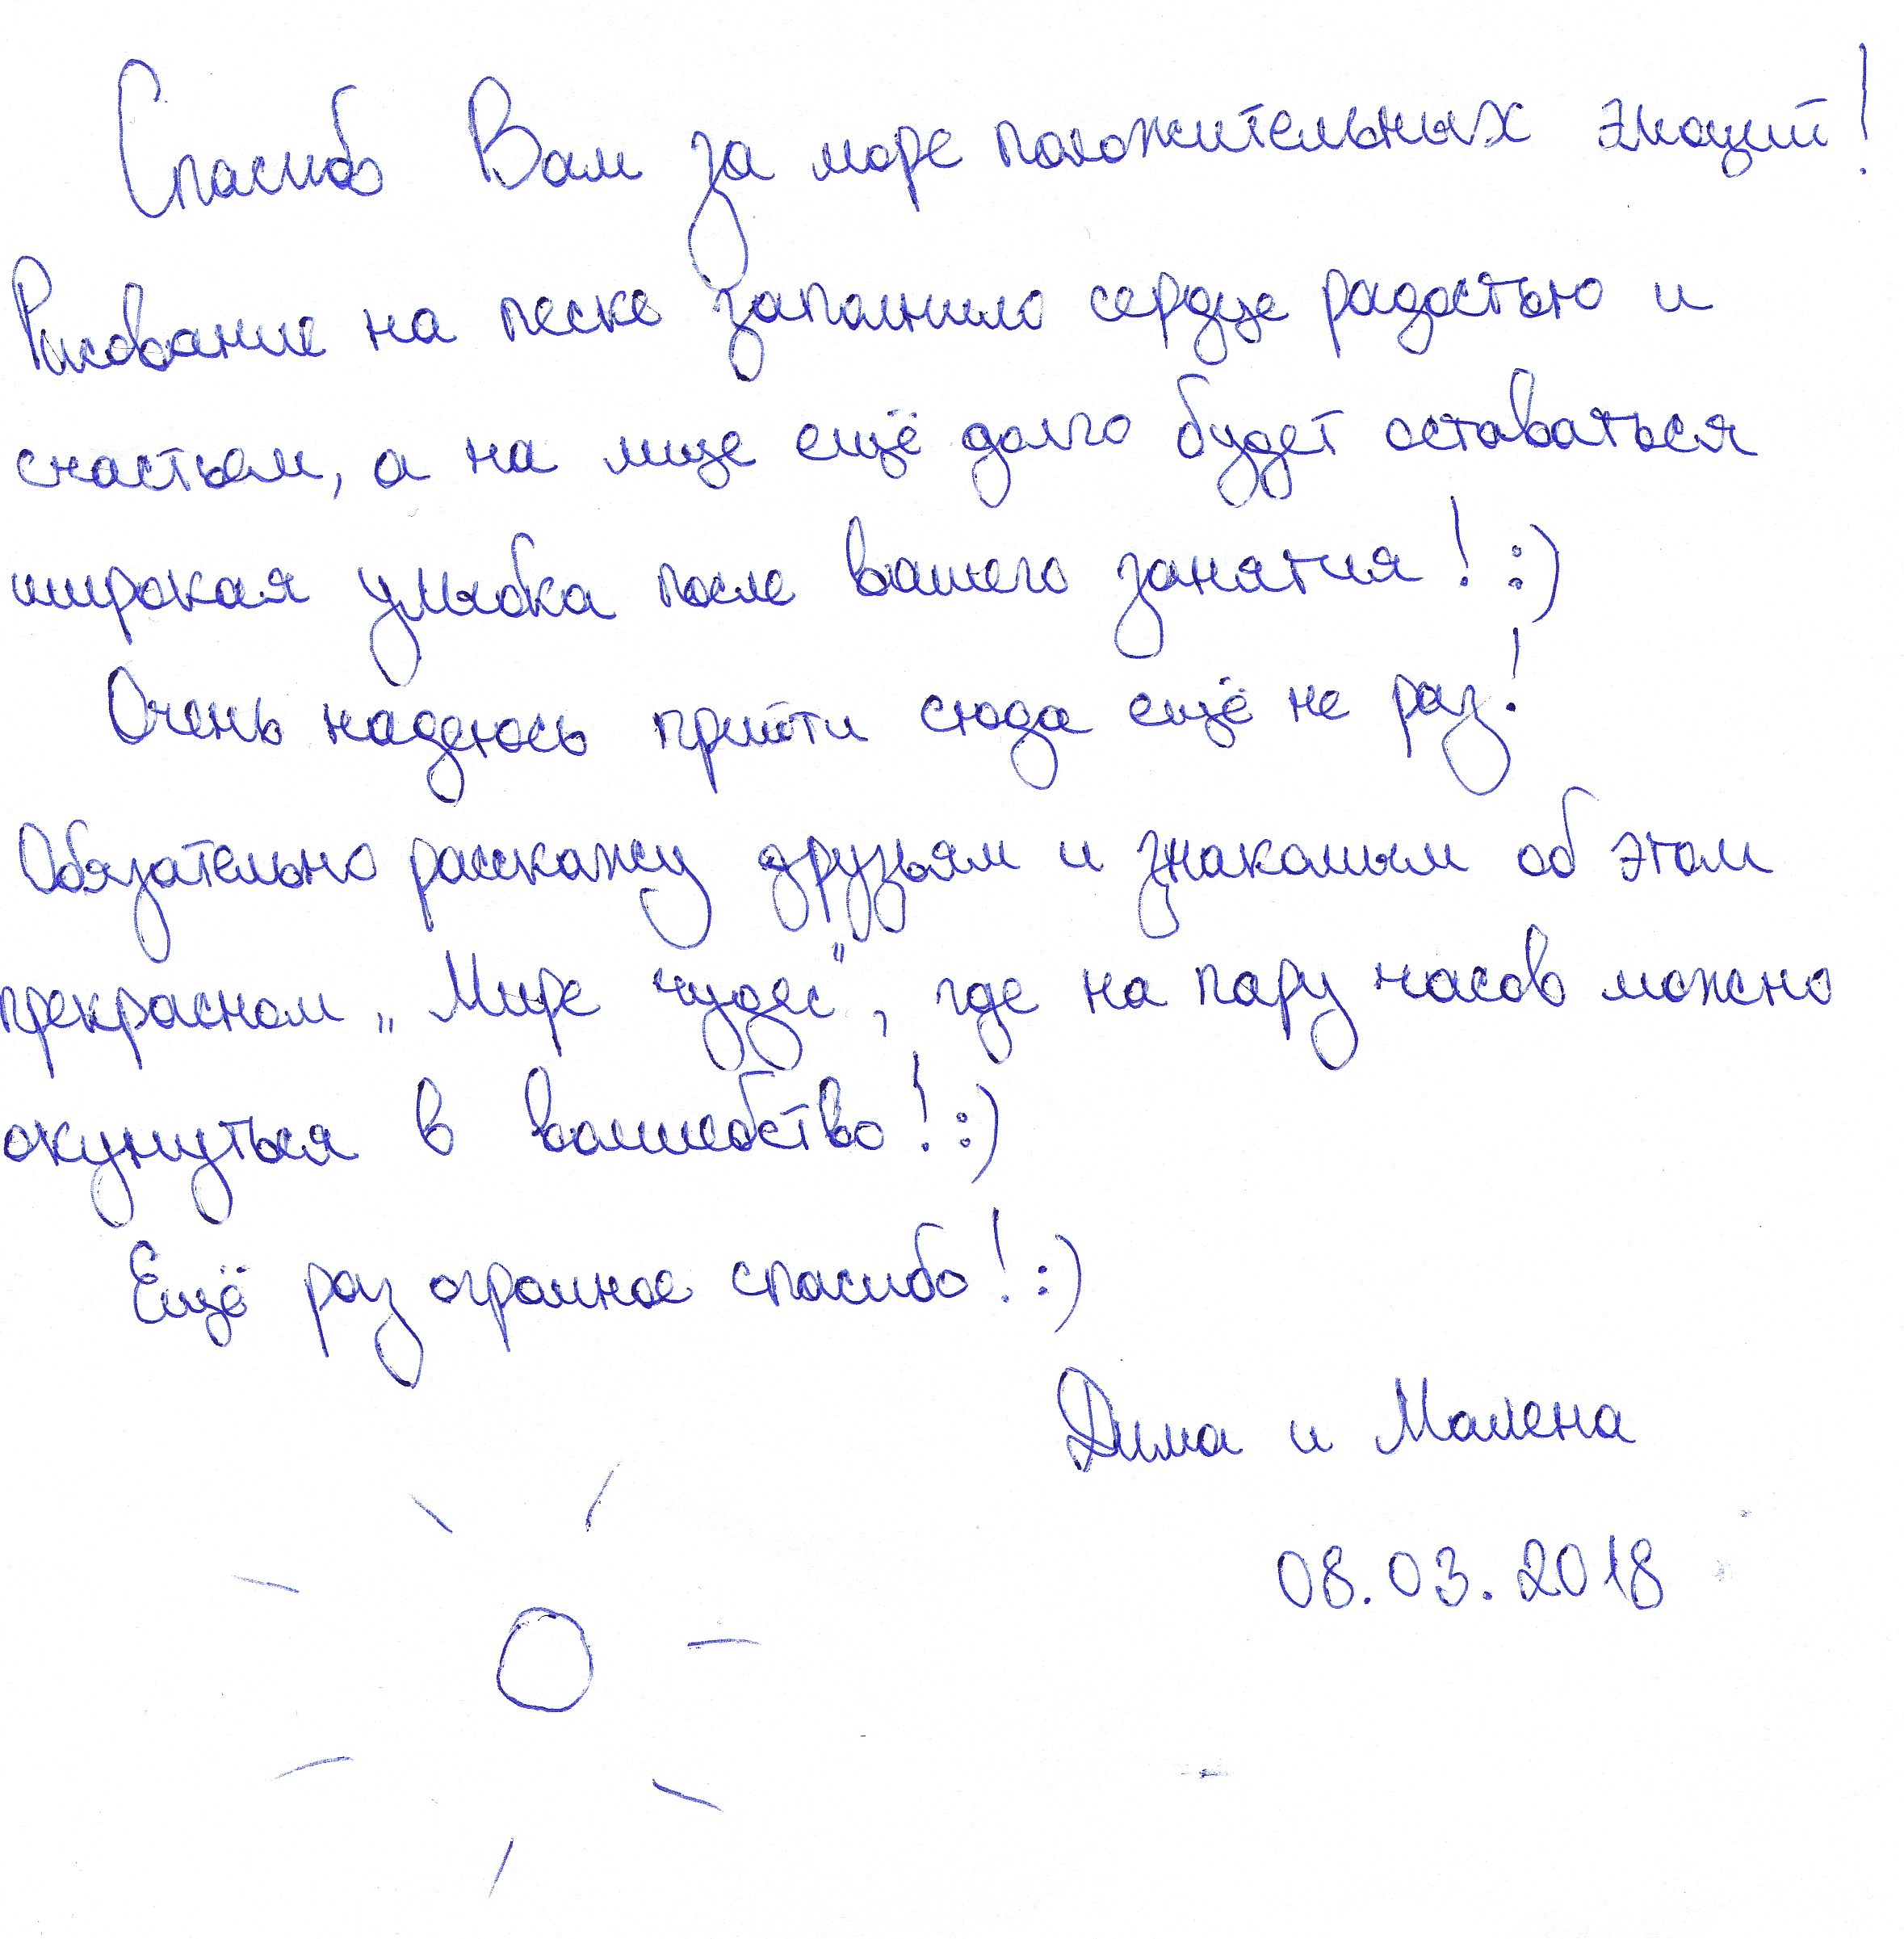 Спасибо Вам за море положительных эмоций!
Рисование на песке заполнило сердце радостью и
счастьем, а на лице ещё долго будет оставаться
широкая улыбка после вашего занятия! :)
Очень надеюсь прийти сюда ещё не раз!
Обязательно расскажу друзьям и знакомым об этом
прекрасном „Мире чудес", где на пару часов можно
окунуться в волшебство! :)
Ещё раз огромное спасибо! :)
Дима и Малена
08.03.2018